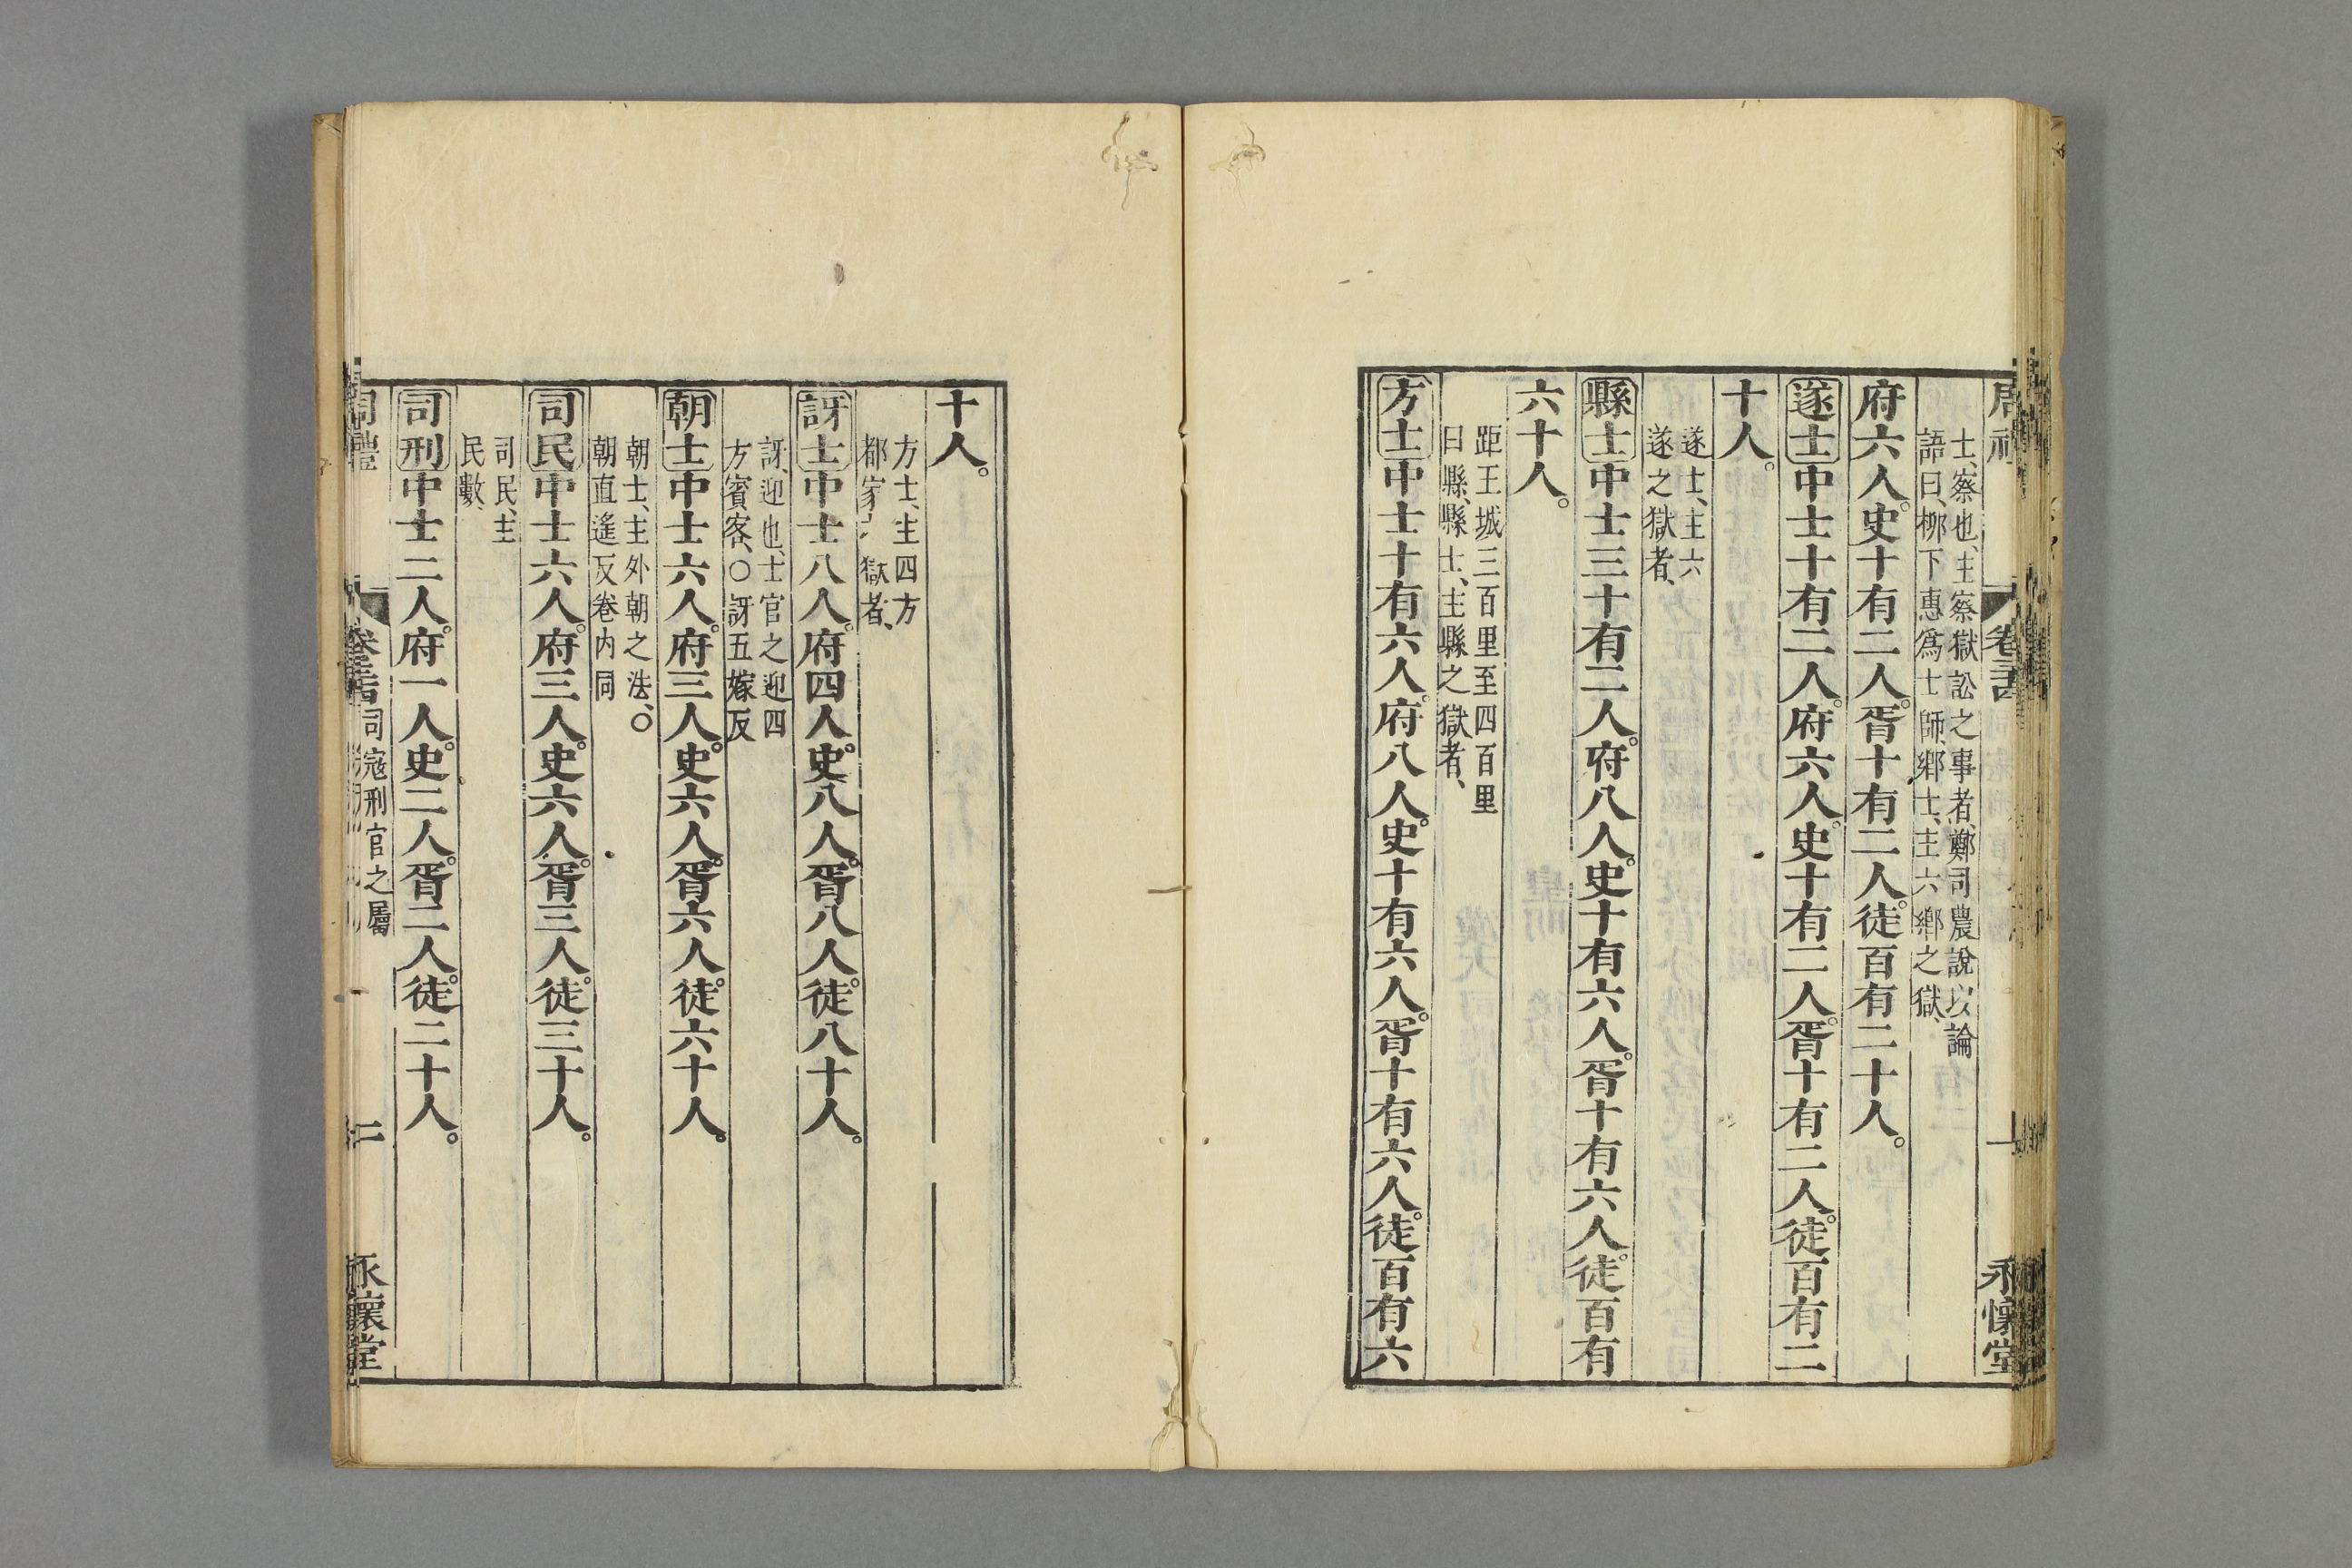 士、察也、主察獄訟之事者、鄭司農說以論
語曰、柳下惠爲士師、鄉士、主六鄉之獄、
府六人。史十有二人。胥十有二人。徒百有二十人。
遂士中士十有二人。府六人。史十有二人。胥十有二人。徒百有二
十人。
遂士、主六
遂之獄者、
縣士中士三十有二人。府八人。史十有六人。胥十有六人。徒百有
六十人。
距王城三百里至四百里
曰縣、縣士、主縣之獄者、
方士中士十有六人。府八人。史十有六人。胥十有六人。徒百有六
十人。
方士、主四方
都家 獄者、
訝士中士八人。府四人。史八人。胥八人。徒八十人。
訝、迎也、士官之迎四
方賓客、○訝五嫁反
朝士中士六人。府三人。史六人。胥六人。徒六十人。
朝士、主外朝之法、○
朝直遙反卷內同
司民中士六人。府三人。史六人。胥三人。徒三十人。
司民、主
民數、
司刑中士二人。府一人。史二人。胥二人。徒二十人。
司寇刑官之屬
二
永懷堂